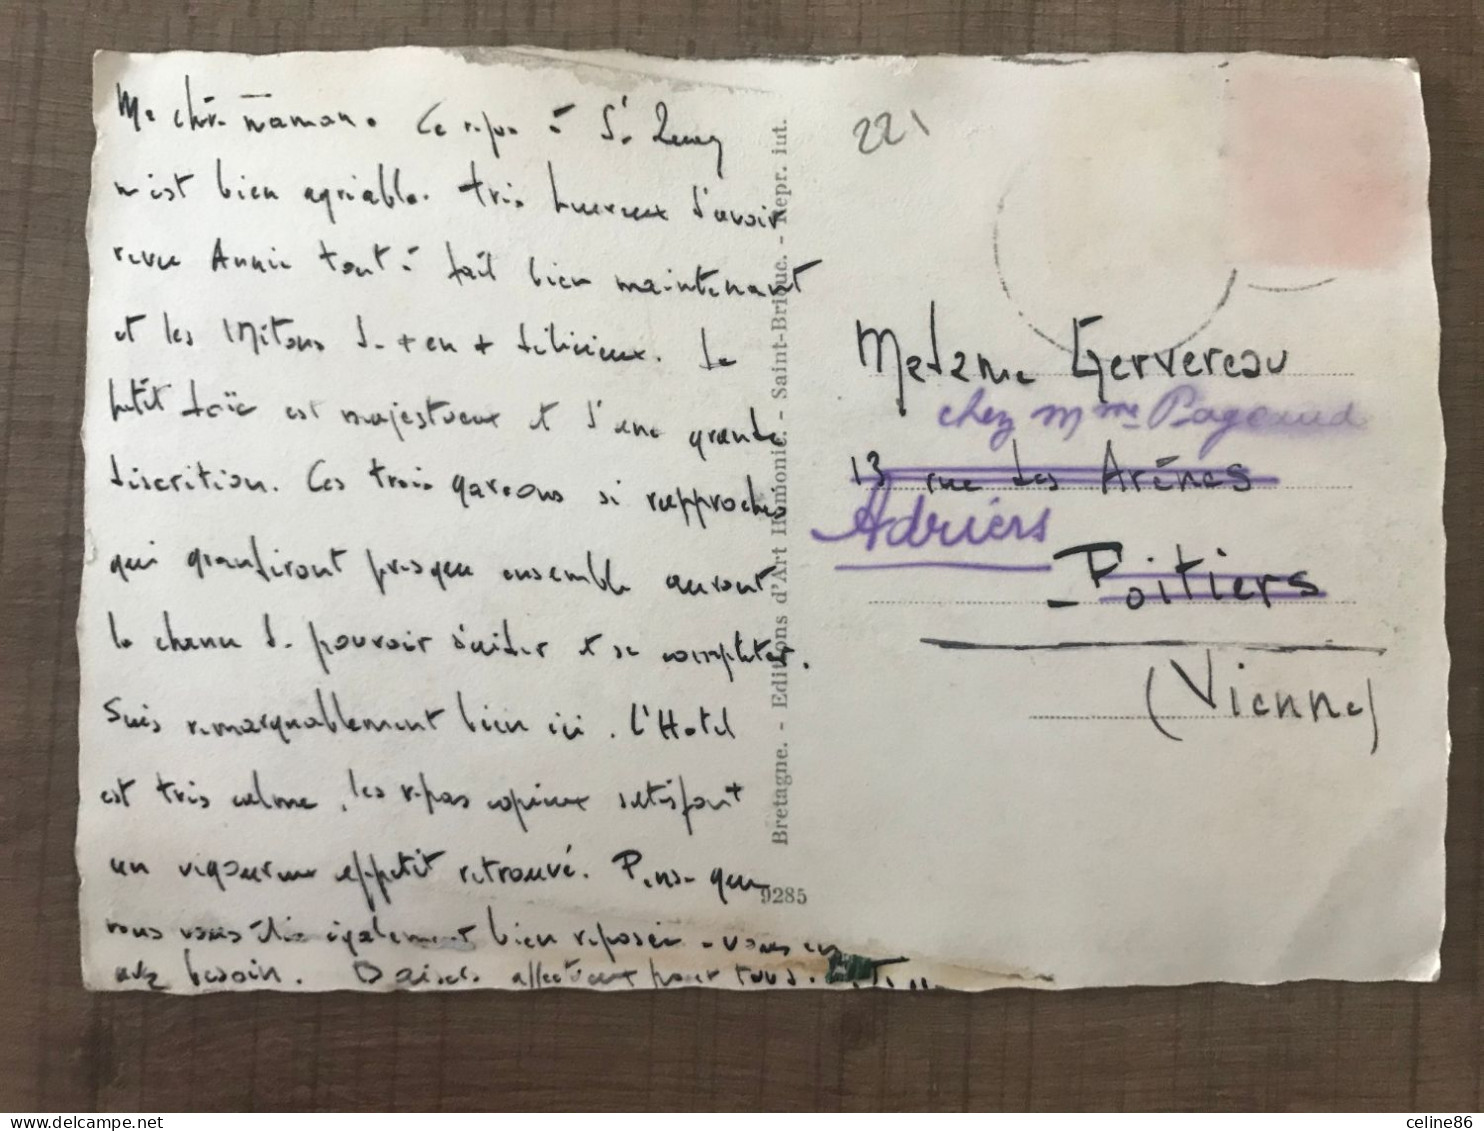 Ma chère maman. Ce repos à St Quay
m'est bien agréable. Très heureux d'avoir
revu Annie tout à fait bien maintenant
et les Mitons de + en + délicieux. Le
petit est majestueux et d'une grande
discrétion. Ces trois garçons si rapprochés
qui grandiront presque ensemble auront
la chance de pouvoir s'aider et se compléter.
Suis remarquablement bien ici. L'Hotel
est très calme, les repas copieux satisfont
un vigoureux appétit retrouvé. Pense que
vous vous êtes également bien reposée - vous en
avez besoin. Baisers affectueux pour tous.
Bretagne. - Editions d'Art Jamonic. - Saint-Brieuc. - Repr. int.
9285
221
Madame Gervereau
chez Mme
13 rue des Arènes
Adriers
- Poitiers
(Vienne)
celine86